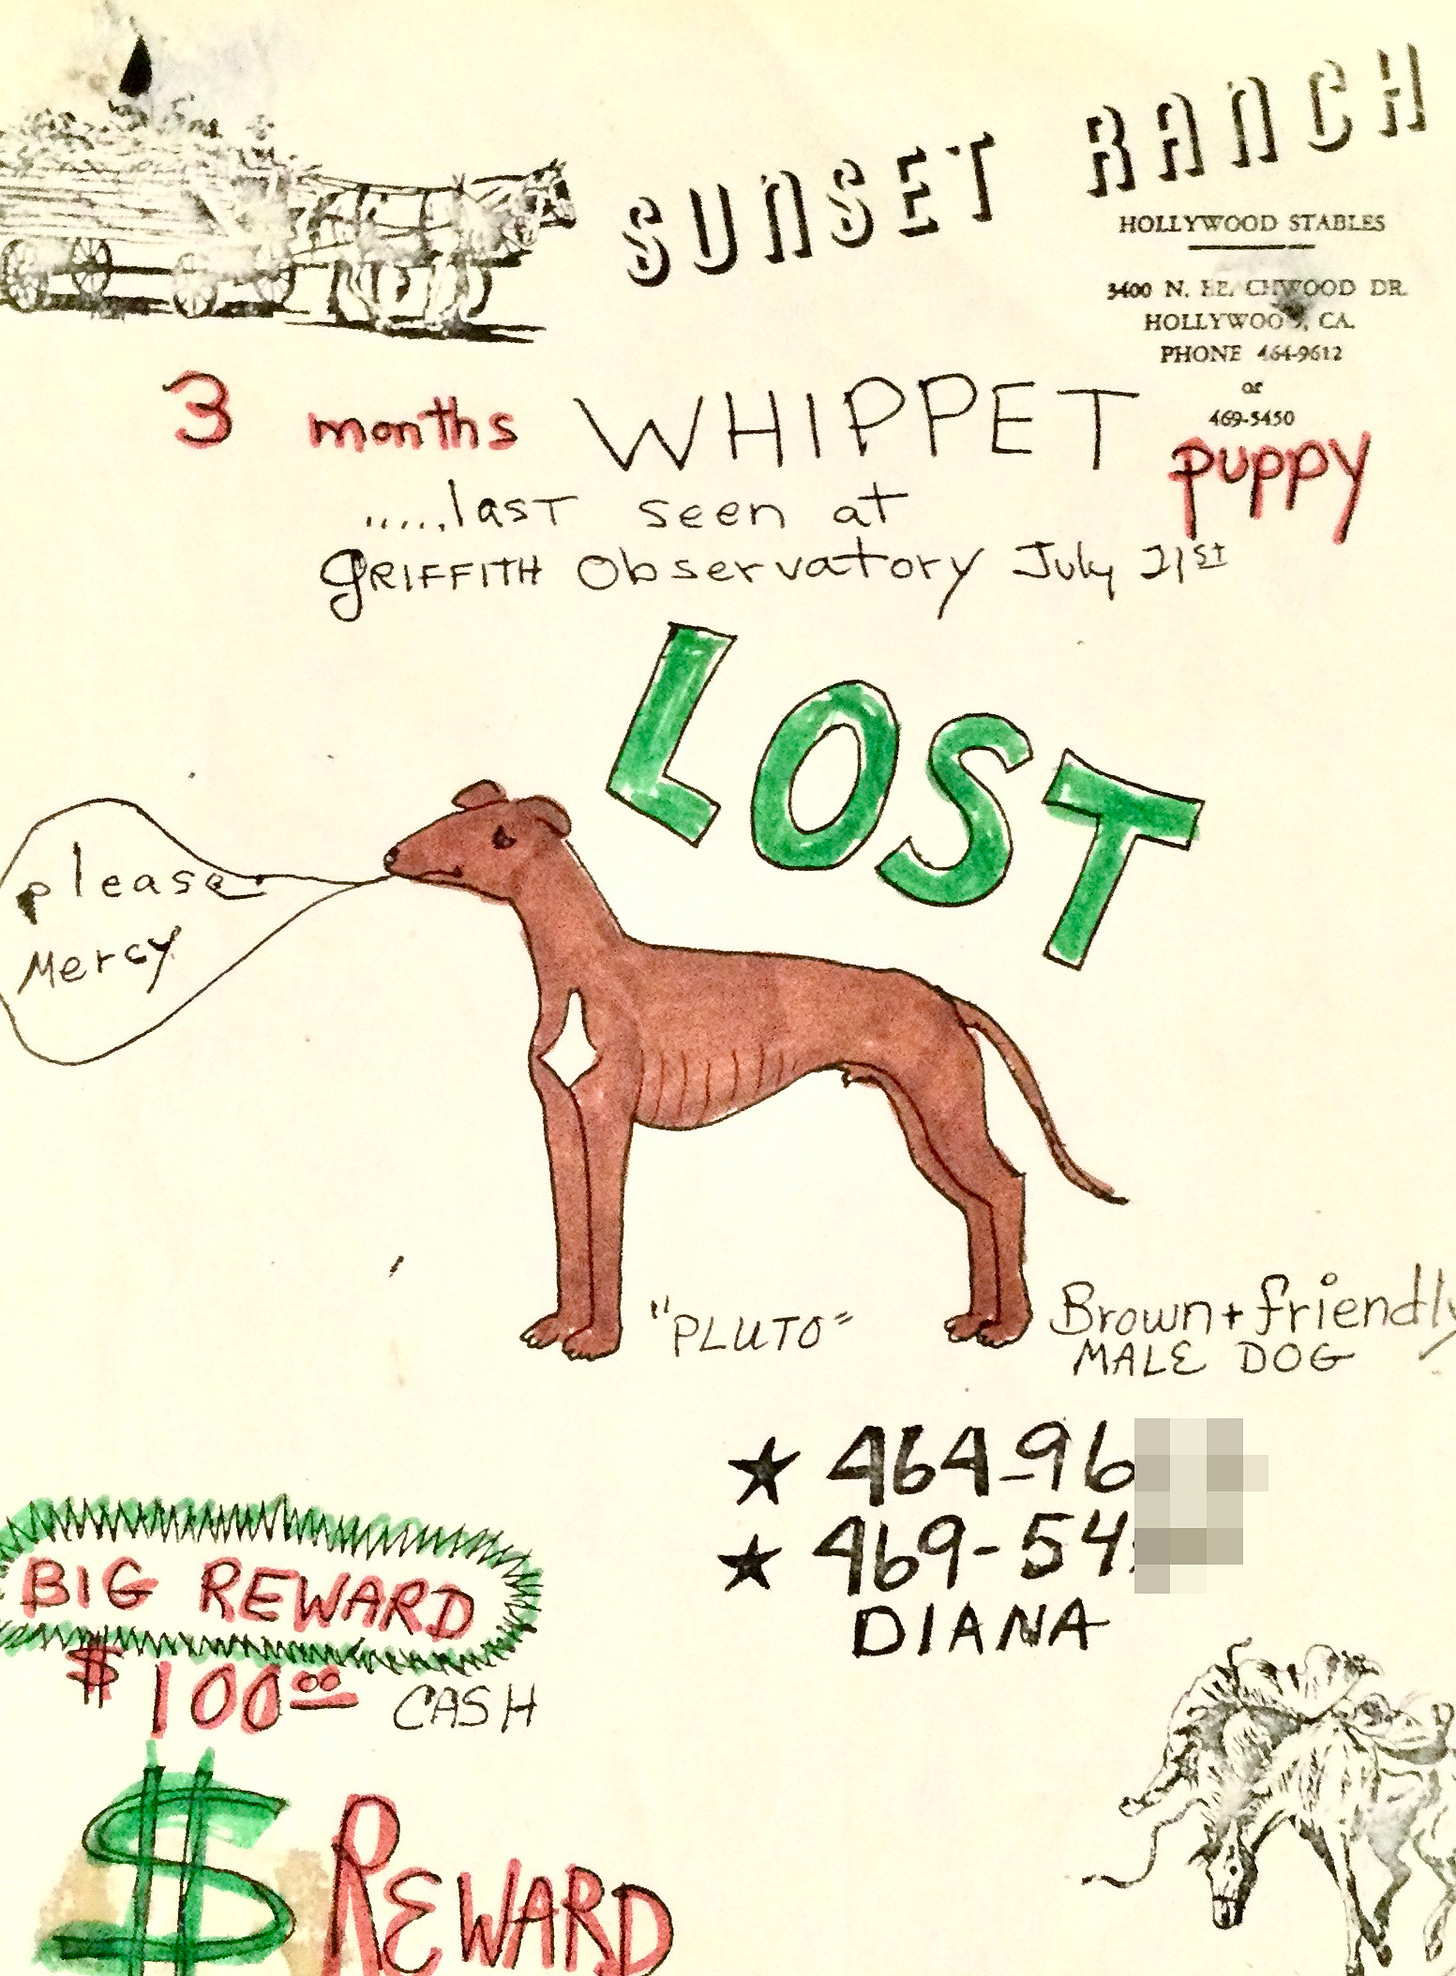 SUNSET RANCH
HOLLYWOOD STABLES
3400 N. BEACHWOOD DR.
HOLLYWOOD, CA.
PHONE 464-9612
or
469-5450
3 months WHIPPET puppy
.....last seen at
GRIFFITH Observatory July 21st
LOST
please
Mercy
"PLUTO"
Brown + friendly
MALE DOG
★ 464-96
★ 469-54
DIANA
BIG REWARD
$100.00 CASH
$ REWARD